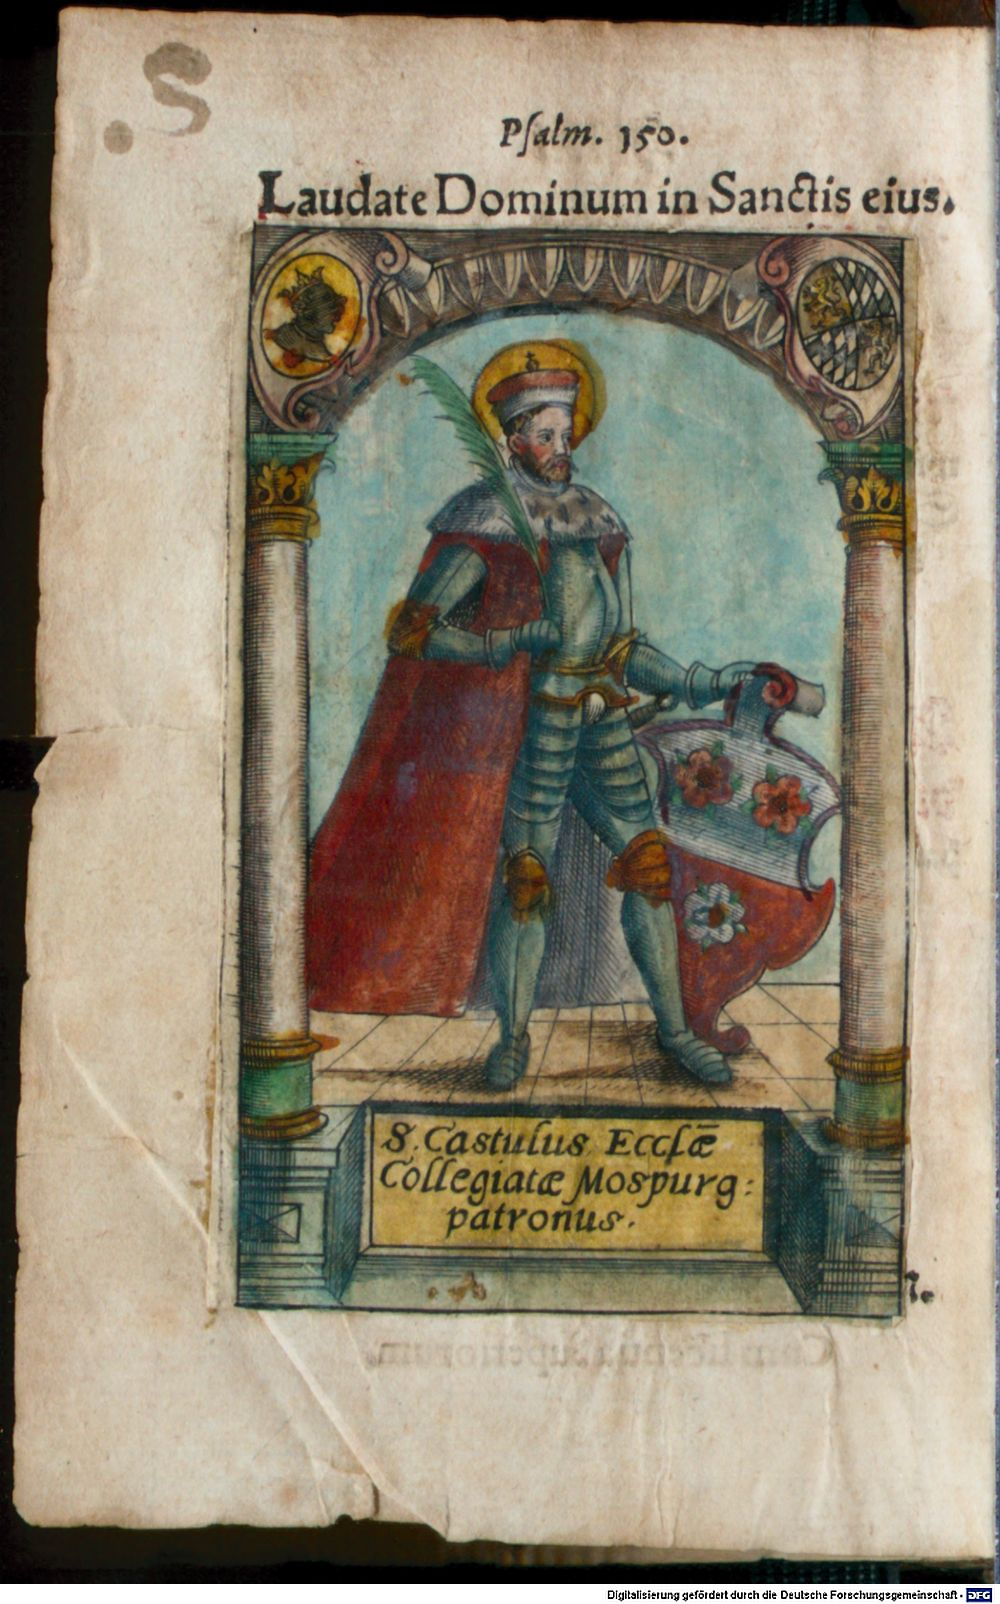 Psalm. 150.
Laudate Dominum in Sanctis eius.
S. Castulus Ecclǣ
Collegiatæ Mospurg:
patronus.
Cum licentia Superiorum.
Digitalisierung gefördert durch die Deutsche Forschungsgemeinschaft - DFG